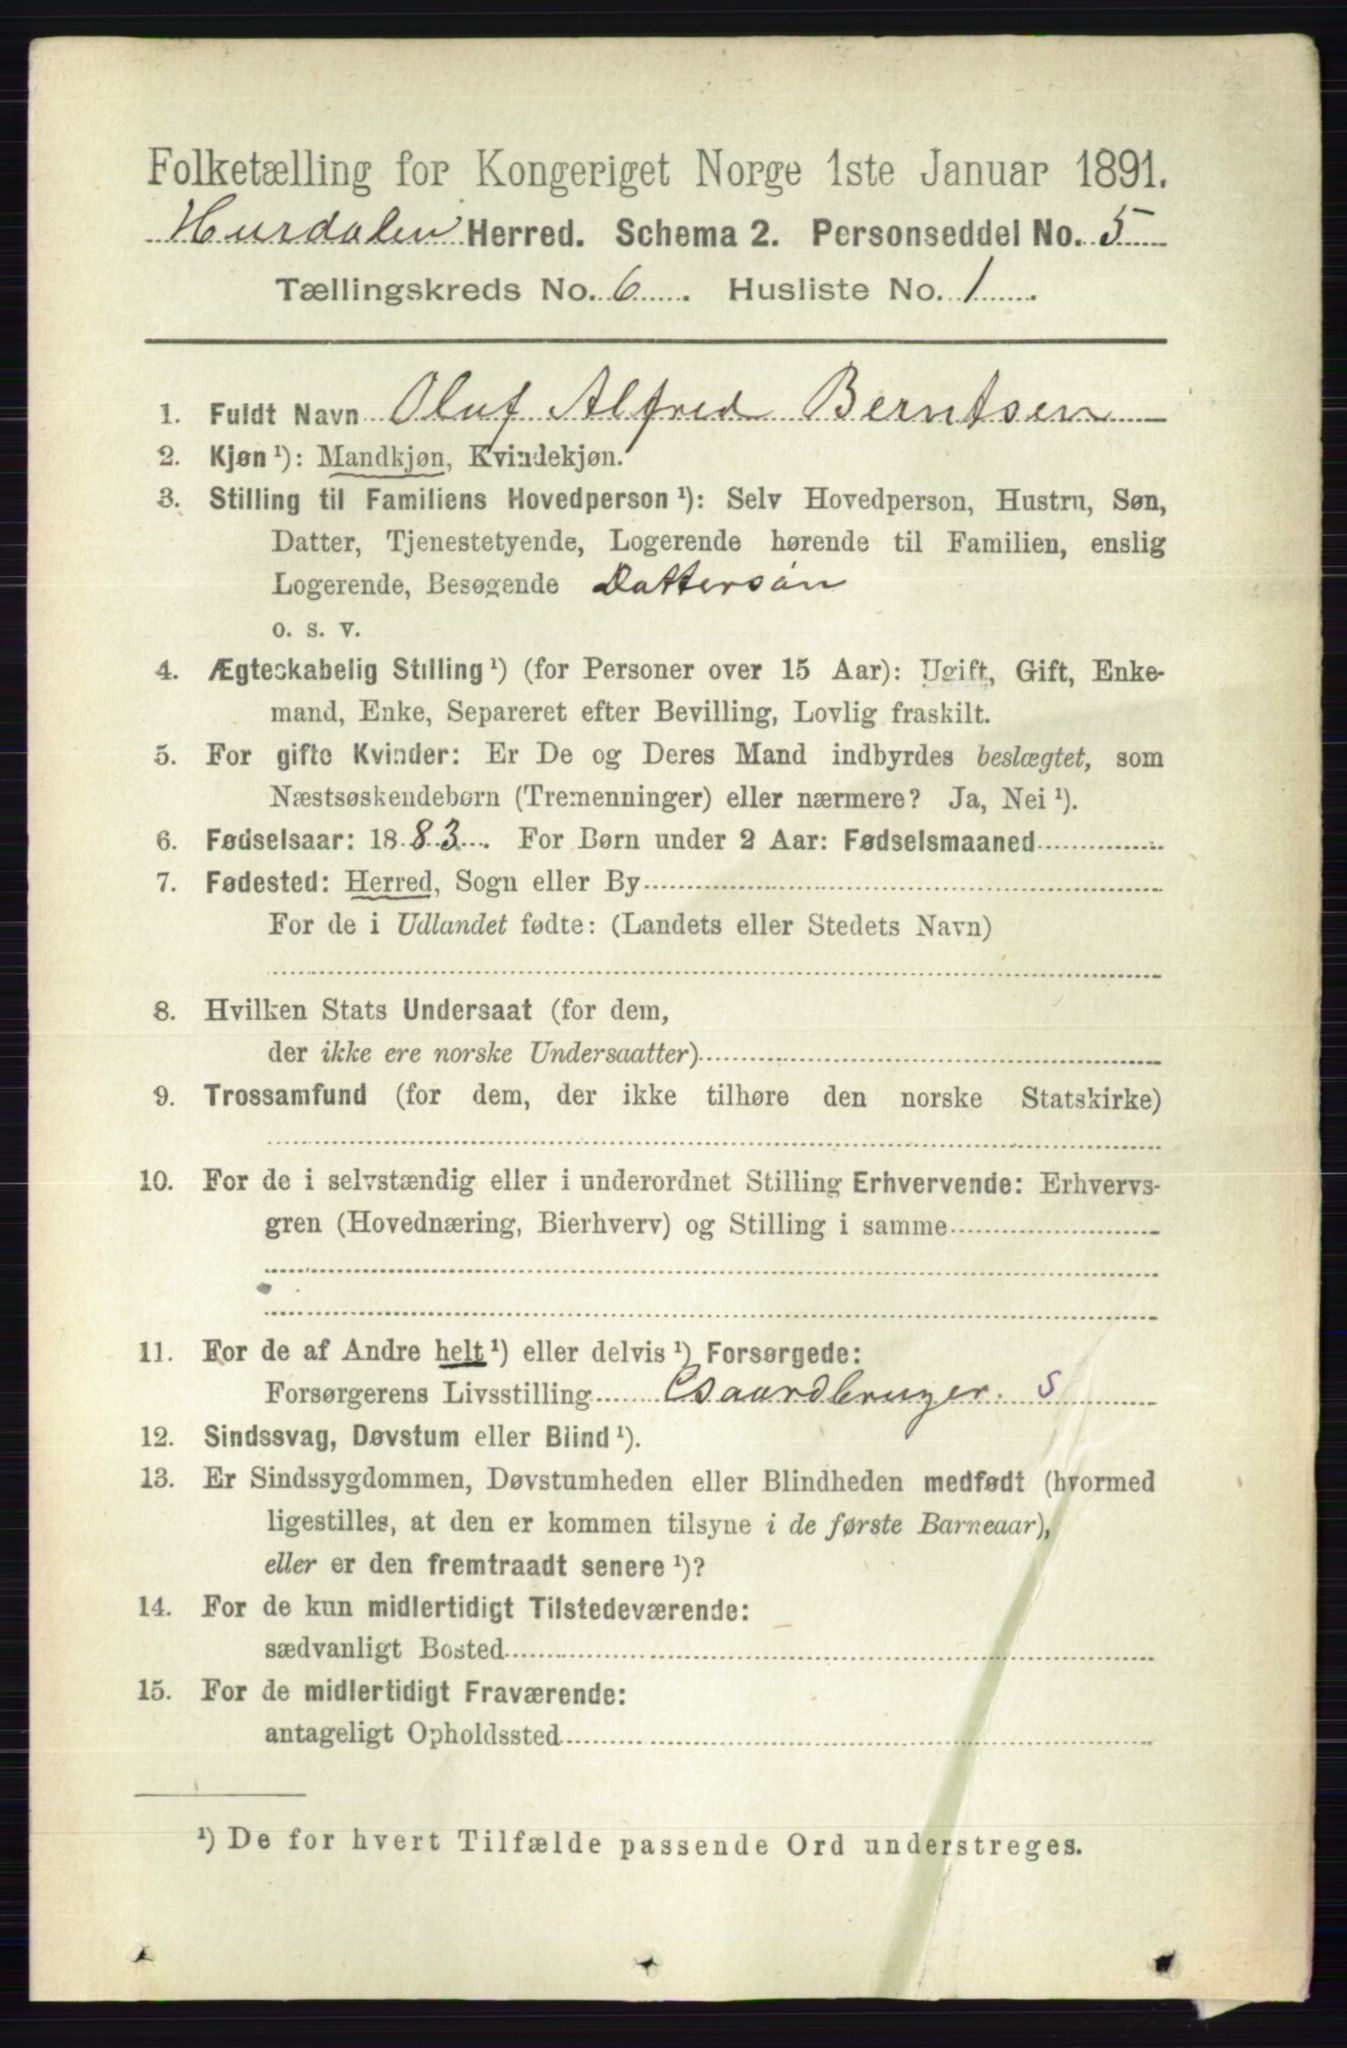 Folketælling for Kongeriget Norge 1ste Januar 1891.
Hurdalen Herred. Schema 2. Personseddel No. 5
Tællingskreds No. 6. Husliste No. 1.
1. Fuldt Navn Oluf Alfred Berntsen
2. Kjøn ¹): Mandkjøn, Kvindekjøn.
3. Stilling til Familiens Hovedperson ¹): Selv Hovedperson, Hustru, Søn,
Datter, Tjenestetyende, Logerende hørende til Familien, enslig
Logerende, Besøgende Dattersøn
o. s. v.
4. Ægteskabelig Stilling ¹) (for Personer over 15 Aar): Ugift, Gift, Enke-
mand, Enke, Separeret efter Bevilling, Lovlig fraskilt.
5. For gifte Kvinder: Er De og Deres Mand indbyrdes beslægtet, som
Næstsøskendebørn (Tremenninger) eller nærmere? Ja, Nei ¹).
6. Fødselsaar: 1883. For Børn under 2 Aar: Fødselsmaaned
7. Fødested: Herred, Sogn eller By
For de i Udlandet fødte: (Landets eller Stedets Navn)
8. Hvilken Stats Undersaat (for dem,
der ikke ere norske Undersaatter)
9. Trossamfund (for dem, der ikke tilhøre den norske Statskirke)
10. For de i selvstændig eller i underordnet Stilling Erhvervende: Erhvervs-
gren (Hovednæring, Bierhverv) og Stilling i samme
11. For de af Andre helt ¹) eller delvis ¹) Forsørgede:
Forsørgerens Livsstilling Gaardbruger. S
12. Sindssvag, Døvstum eller Blind ¹).
13. Er Sindssygdommen, Døvstumheden eller Blindheden medfødt (hvormed
ligestilles, at den er kommen tilsyne i de første Barneaar),
eller er den fremtraadt senere ¹)?
14. For de kun midlertidigt Tilstedeværende:
sædvanligt Bosted
15. For de midlertidigt Fraværende:
antageligt Opholdssted
¹) De for hvert Tilfælde passende Ord understreges.